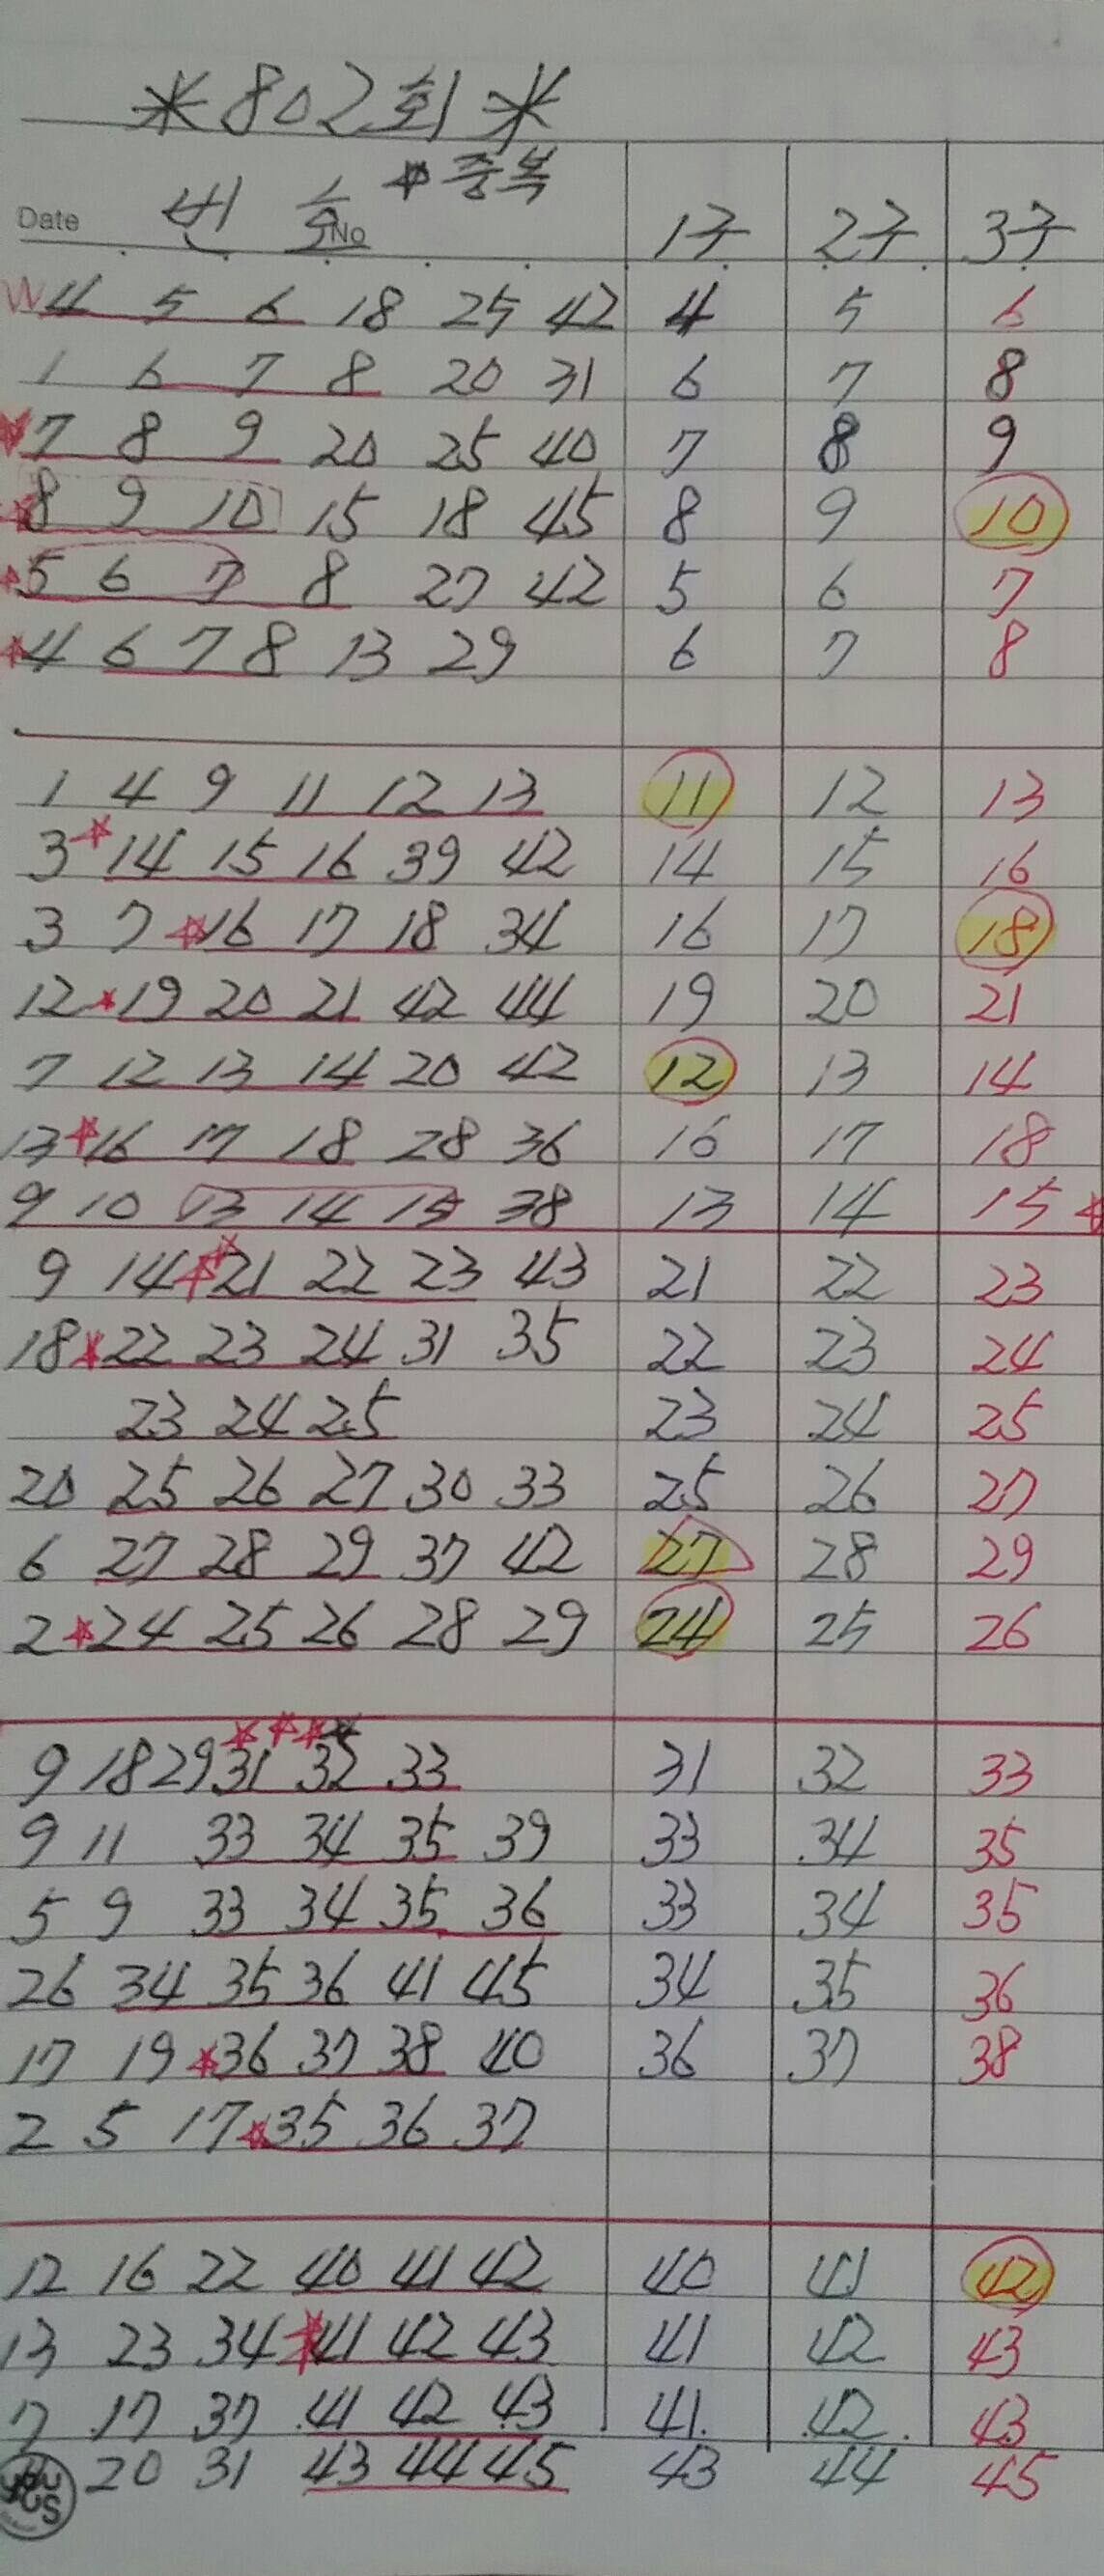 *802회*
☆중복
Date 번 호 No 1구 2구 3구
4 5 6 18 25 42 4 5 6
1 6 7 8 20 31 6 7 8
7 8 9 20 25 40 7 8 9
☆8 9 10 15 18 45 8 9 10
☆5 6 7 8 27 42 5 6 7
☆4 6 7 8 13 29 6 7 8
1 4 9 11 12 13 11 12 13
3 ☆14 15 16 39 42 14 15 16
3 7 ☆16 17 18 34 16 17 18
12 ☆19 20 21 42 44 19 20 21
7 12 13 14 20 42 12 13 14
13 ☆16 17 18 28 36 16 17 18
9 10 13 14 15 38 13 14 15 ☆
9 14 ☆21 22 23 43 21 22 23
18 ☆22 23 24 31 35 22 23 24
23 24 25 23 24 25
20 25 26 27 30 33 25 26 27
6 27 28 29 37 42 27 28 29
2 ☆24 25 26 28 29 24 25 26
☆☆☆☆
9 18 29 31 32 33 31 32 33
9 11 33 34 35 39 33 34 35
5 9 33 34 35 36 33 34 35
26 34 35 36 41 45 34 35 36
17 19 ☆36 37 38 40 36 37 38
2 5 17 ☆35 36 37
12 16 22 40 41 42 40 41 42
13 23 34 ☆41 42 43 41 42 43
7 17 37 41 42 43 41 42 43
20 31 43 44 45 43 44 45